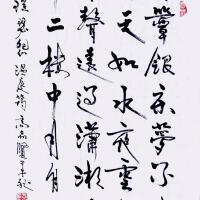 簟銀床夢不
天如水夜雲
聲遠過瀟湘
二樓中月自
瑟怨温庭筠